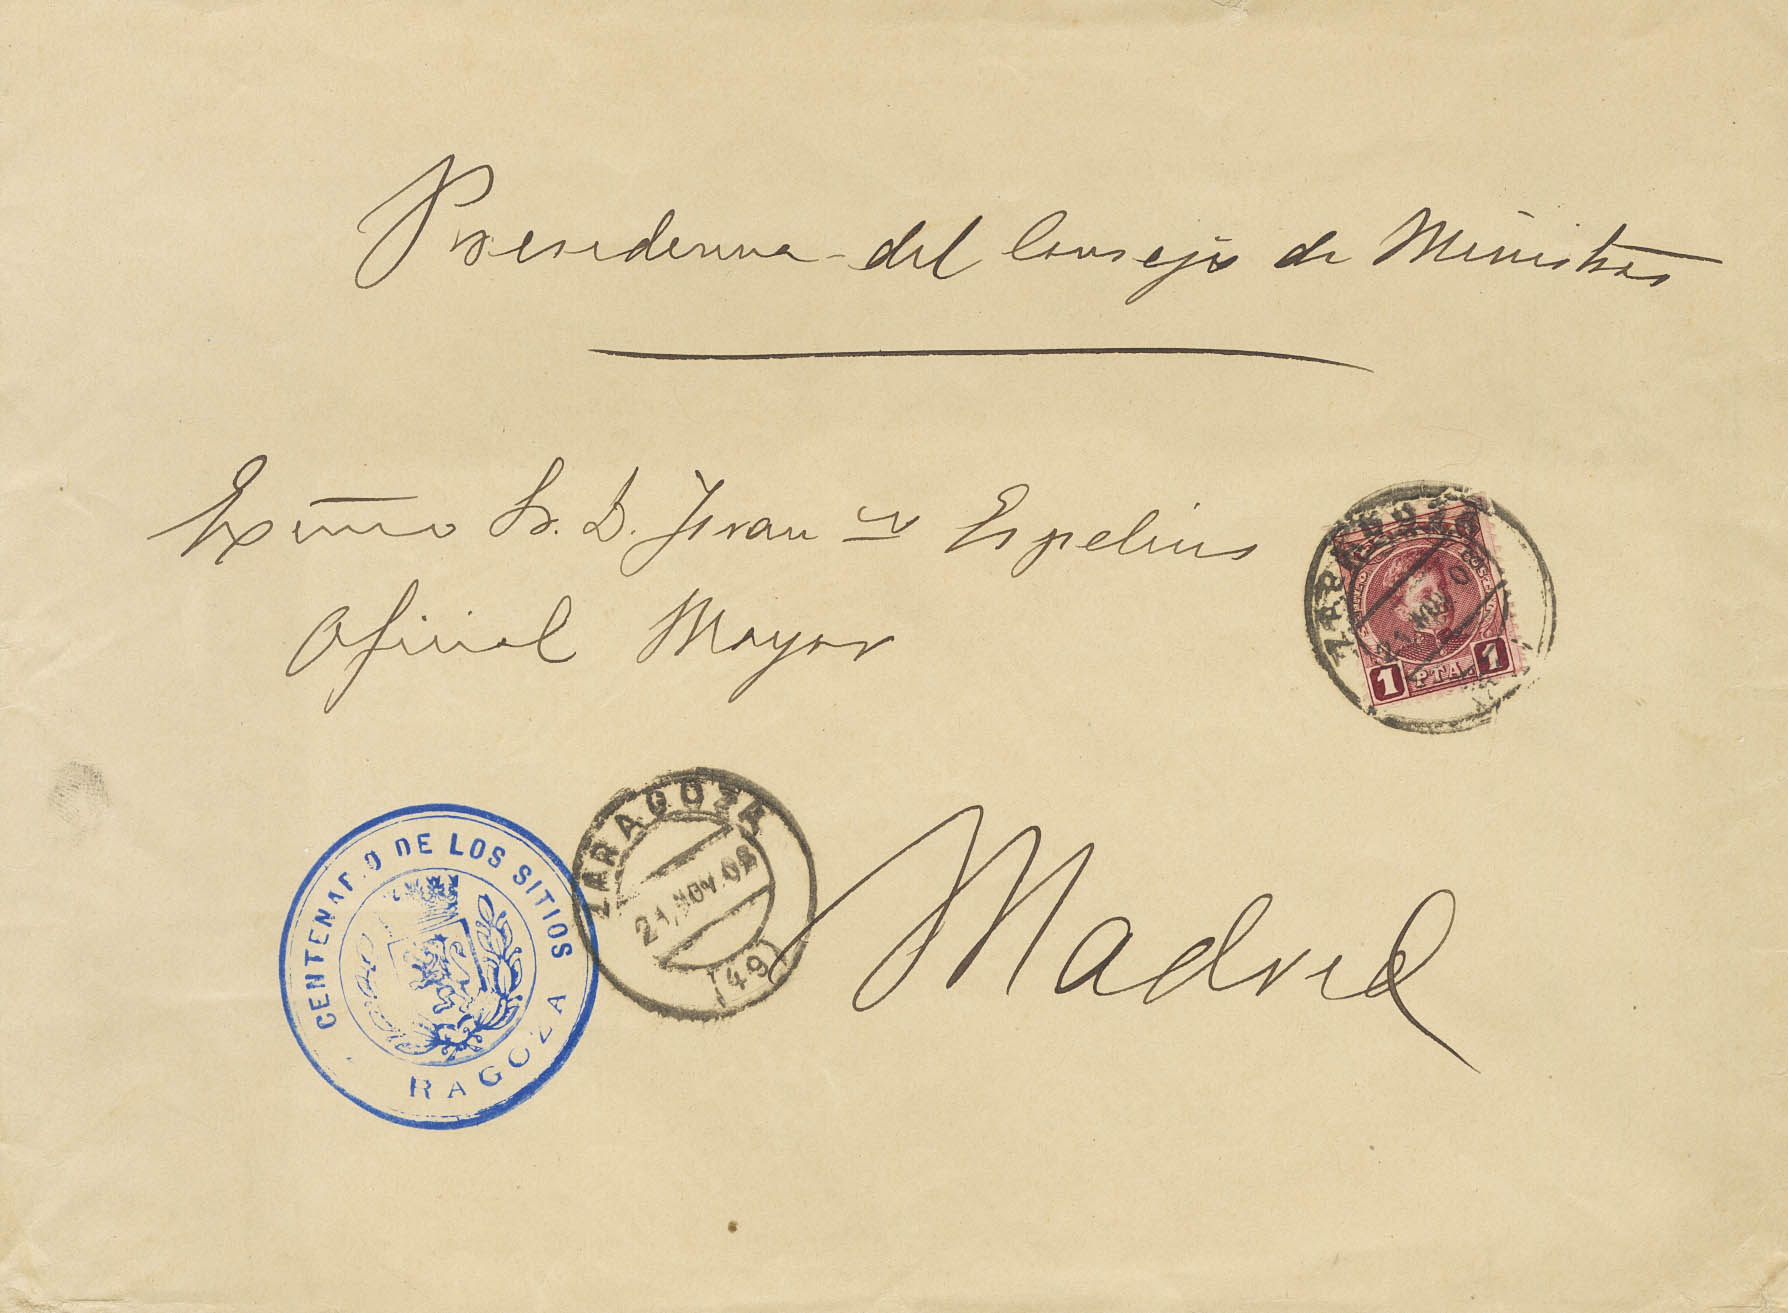 Presidencia del Consejo de Ministros
Exmo Sr. D. Juan Espelius
Oficial Mayor
ZARAGOZA
21 NOV 0
1 PTA 1
CENTENARIO DE LOS SITIOS
RAGOZA
ZARAGOZA
21.NOV.08
(49)
Madrid